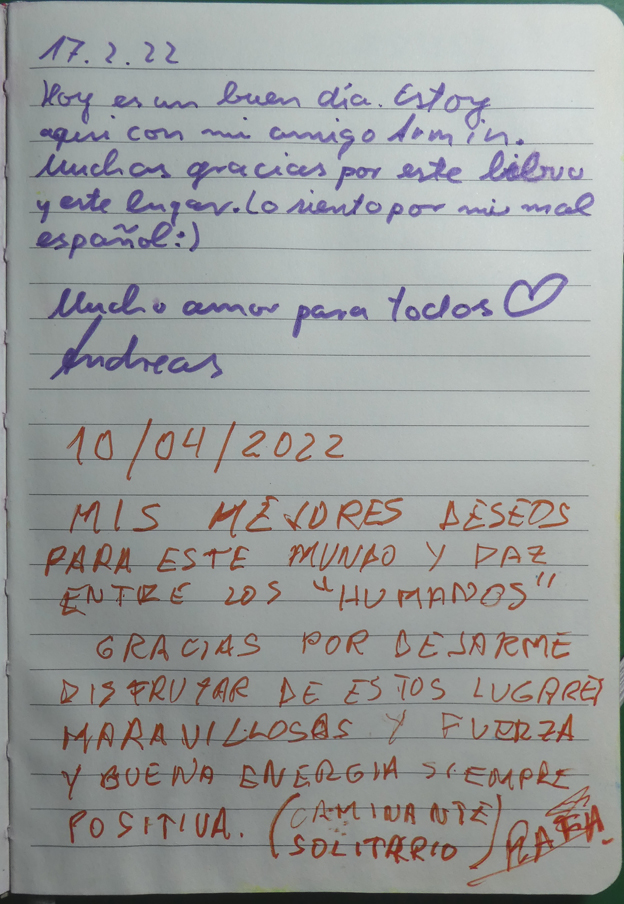 17.2.22
Hoy es un buen día. Estoy
aqui con mi amigo Armin.
Muchas gracias por este
y este lugar. Lo siento por mi mal
español :)
Mucho amor para todos ♡
Andreas
10/04/2022
MIS MEJORES DESEOS
PARA ESTE MUNDO Y PAZ
ENTRE LOS "HUMANOS"
GRACIAS POR DEJARME
DISFRUTAR DE ESTOS LUGARES
MARAVILLOSOS Y FUERZA
Y BUENA ENERGIA SIEMPRE
POSITIVA. (CAMINANTE
SOLITARIO) RAFA.